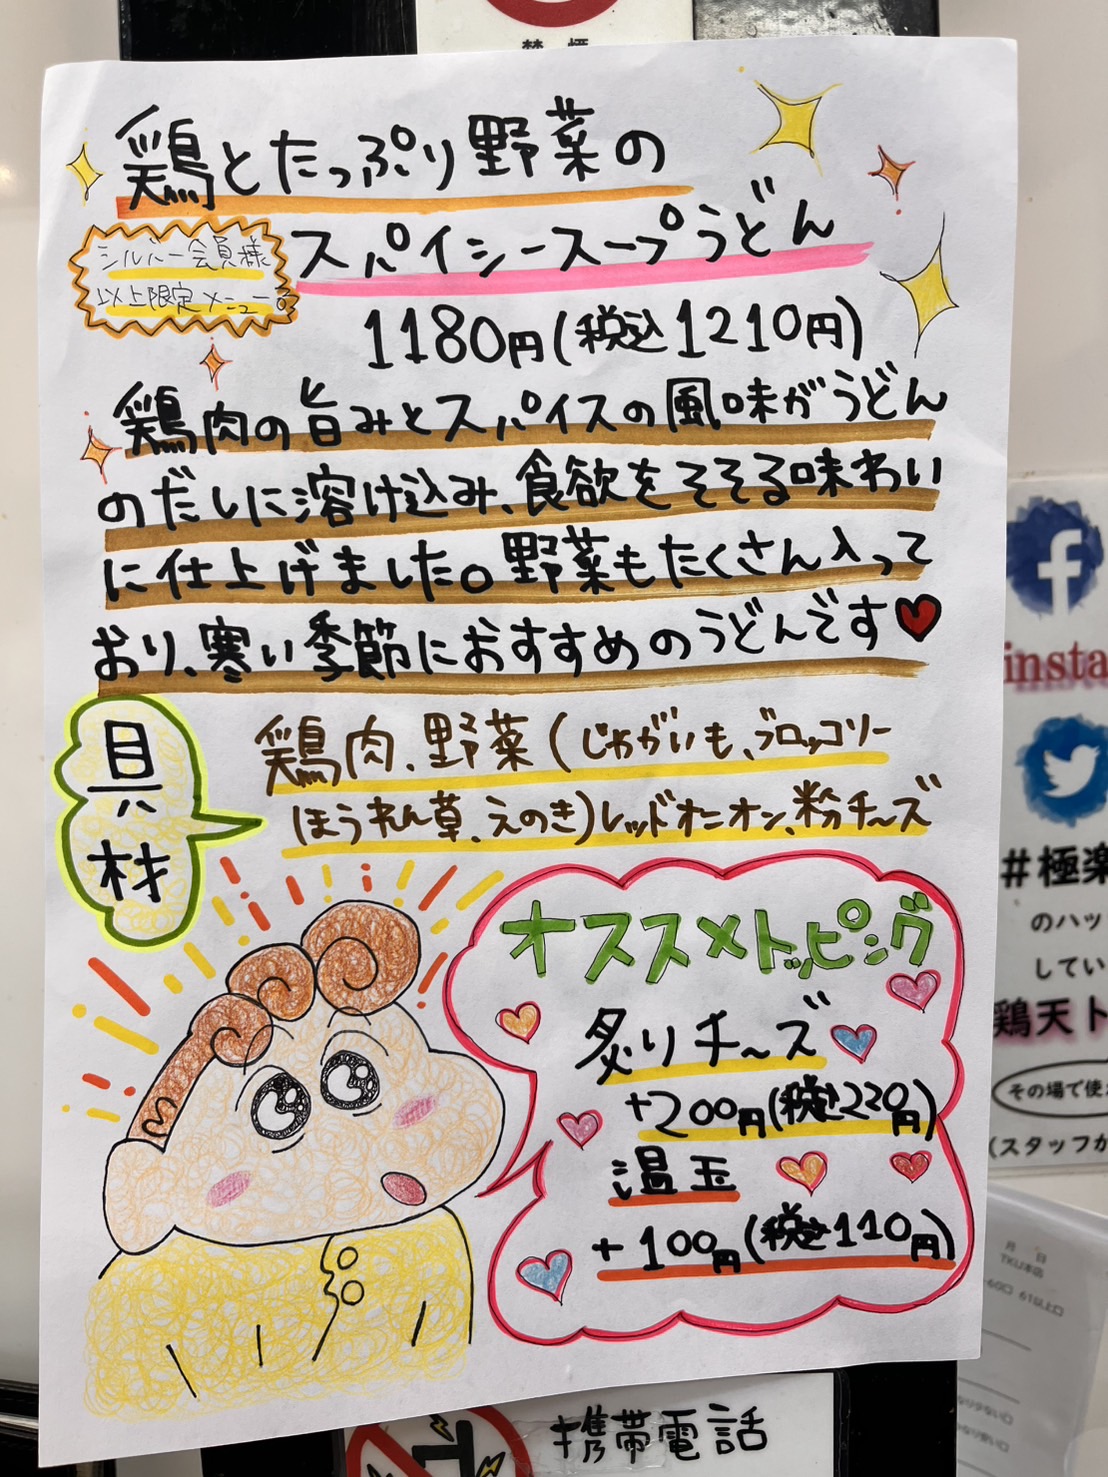 禁煙
鶏とたっぷり野菜の
スパイシースープうどん
シルバー会員様
以上限定メニュー
1180円(税込1210円)
鶏肉の旨みとスパイスの風味がうどん
のだしに溶け込み、食欲をそそる味わい
に仕上げました。野菜もたくさん入って
おり、寒い季節におすすめのうどんです
具材
鶏肉、野菜(じゃがいも、ブロッコリー
ほうれん草、えのき)レッドオニオン、粉チーズ
オススメトッピング
炙りチーズ
+200円(税込220円)
温玉
+100円(税込110円)
insta
#極楽
のハッ
してい
鶏天ト
その場で使
(スタッフが
月 日
携帯電話